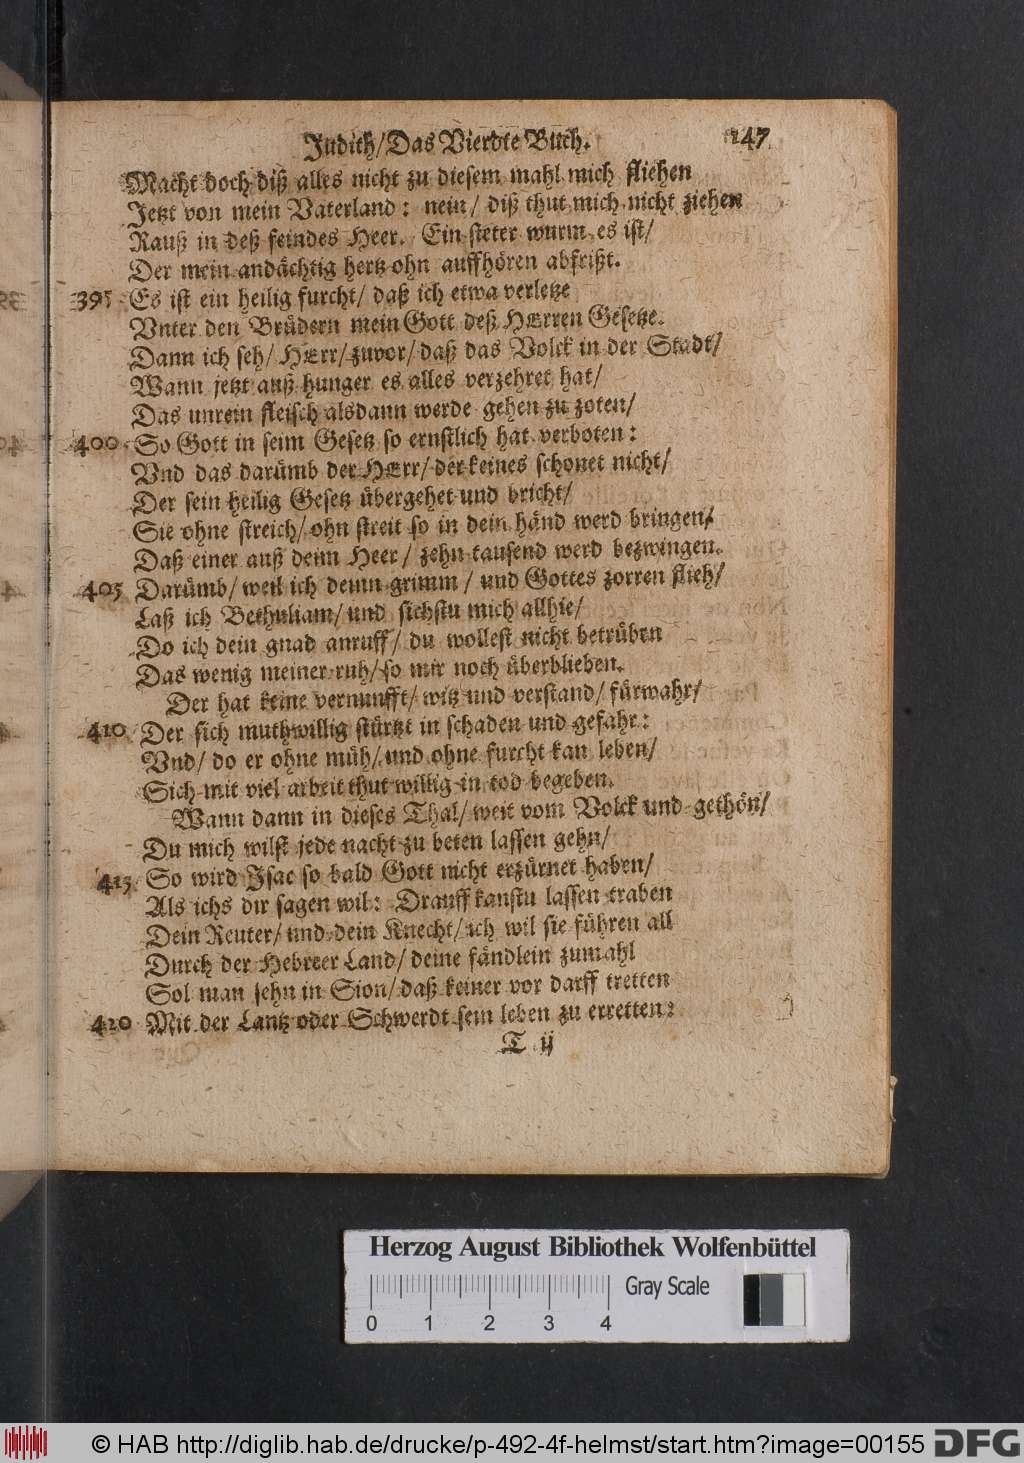 Judith/ Das Vierdte Buch. 147
Macht doch diß alles nicht zu diesem mahl mich fliehen
Jetzt von mein Vaterland: nein/ diß thut mich nicht ziehen
Rauß in deß feindes Heer. Ein steter wurm es ist/
Der mein andächtig hertz ohn auffhören abfrißt.
395 Es ist ein heilig furcht/ daß ich etwa verletze
Vnter den Brüdern mein Gott deß HErren Gesetze.
Dann ich seh/ HErr/ zuvor/ daß das Volck in der Stadt/
Wann jetzt auß hunger es alles verzehret hat/
Das unrein fleisch alsdann werde gehen zu zoten/
400 So Gott in seim Gesetz so ernstlich hat verboten:
Vnd das darümb der HErr/ der keines schonet nicht/
Der sein heilig Gesetz übergehet und bricht/
Sie ohne streich/ ohn streit so in dein händ werd bringen/
Daß einer auß deim Heer/ zehn tausend werd bezwingen.
405 Darümb/ weil ich deinn grimm/ und Gottes zorren flieh/
Laß ich Bethuliam/ und sichstu mich allhie/
Do ich dein gnad anruff/ du wollest nicht betrüben
Das wenig meiner ruh/ so mir noch überblieben.
Der hat keine vernunfft/ witz und verstand/ fürwahr/
410 Der sich muthwillig stürtzt in schaden und gefahr:
Vnd/ do er ohne müh/ und ohne furcht kan leben/
Sich mit viel arbeit thut willig in tod begeben.
Wann dann in dieses Thal/ weit vom Volck und gethön/
Du mich wilst jede nacht zu beten lassen gehn/
415 So wird Isac so bald Gott nicht erzürnet haben/
Als ichs dir sagen wil: Drauff kanstu lassen traben
Dein Reuter/ und dein Knecht/ ich wil sie führen all
Durch der Hebreer Land/ deine fändlein zumahl
Sol man sehn in Sion/ daß keiner vor darff tretten
420 Mit der Lantz oder Schwerdt sein leben zu erretten:
T ij
Herzog August Bibliothek Wolfenbüttel
Gray Scale
0 1 2 3 4
© HAB http://diglib.hab.de/drucke/p-492-4f-helmst/start.htm?image=00155 DFG